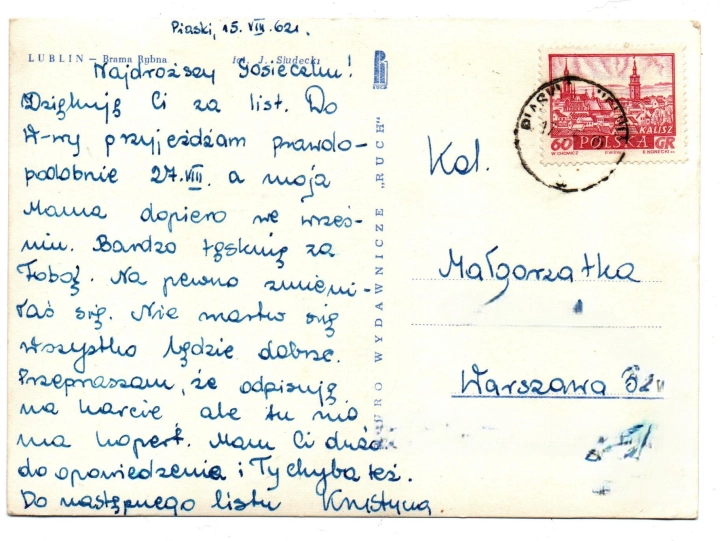 Piaski, 15. VIII 62r.
LUBLIN – Brama Rybna
fot. J. Siudecki
Najdroższy Gosieczku!
Dziękuję Ci za list. Do
W-wy przyjeżdżam prawdo-
podobnie 27.VIII. a moja
Mama dopiero we wrześ-
niu. Bardzo tęsknię za
Tobą. Na pewno zmieni-
łaś się. Nie martw się
wszystko będzie dobrze.
Przepraszam, że odpisuję
na karcie, ale tu nie
ma kopert. Mam Ci dużo
do opowiedzenia i Ty chyba też.
Do następnego listu Krystyna.
BIURO WYDAWNICZE „RUCH"
KALISZ
60 POLSKA GR
PIASKI
Kol.
Małgorzatka
Warszawa